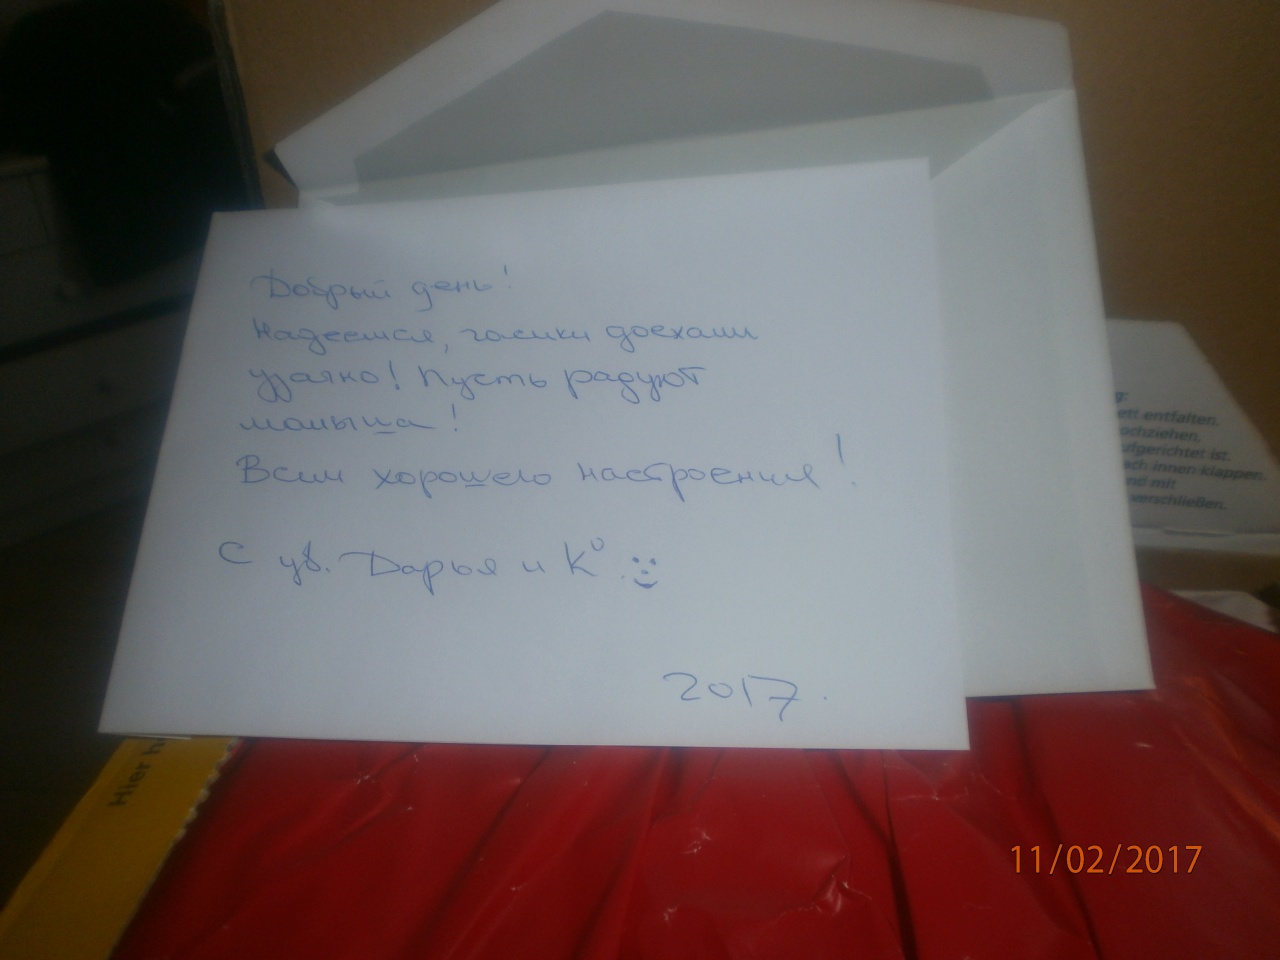 Добрый день!
Надеемся, часики доехали
удачно! Пусть радуют
малыша!
Всем хорошего настроения!
С ув. Дарья и К⁰.
2017.
ett entfalten.
ist.
innen klappen.
mit
verschließen.
Hier
11/02/2017